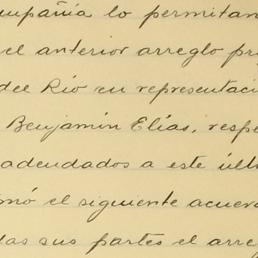 mpañía lo permitan
el anterior arreglo pr
del Río en representaci
Benjamín Elías, respe
adeudados a este últi
mó el siguiente acuer
das sus partes el arre